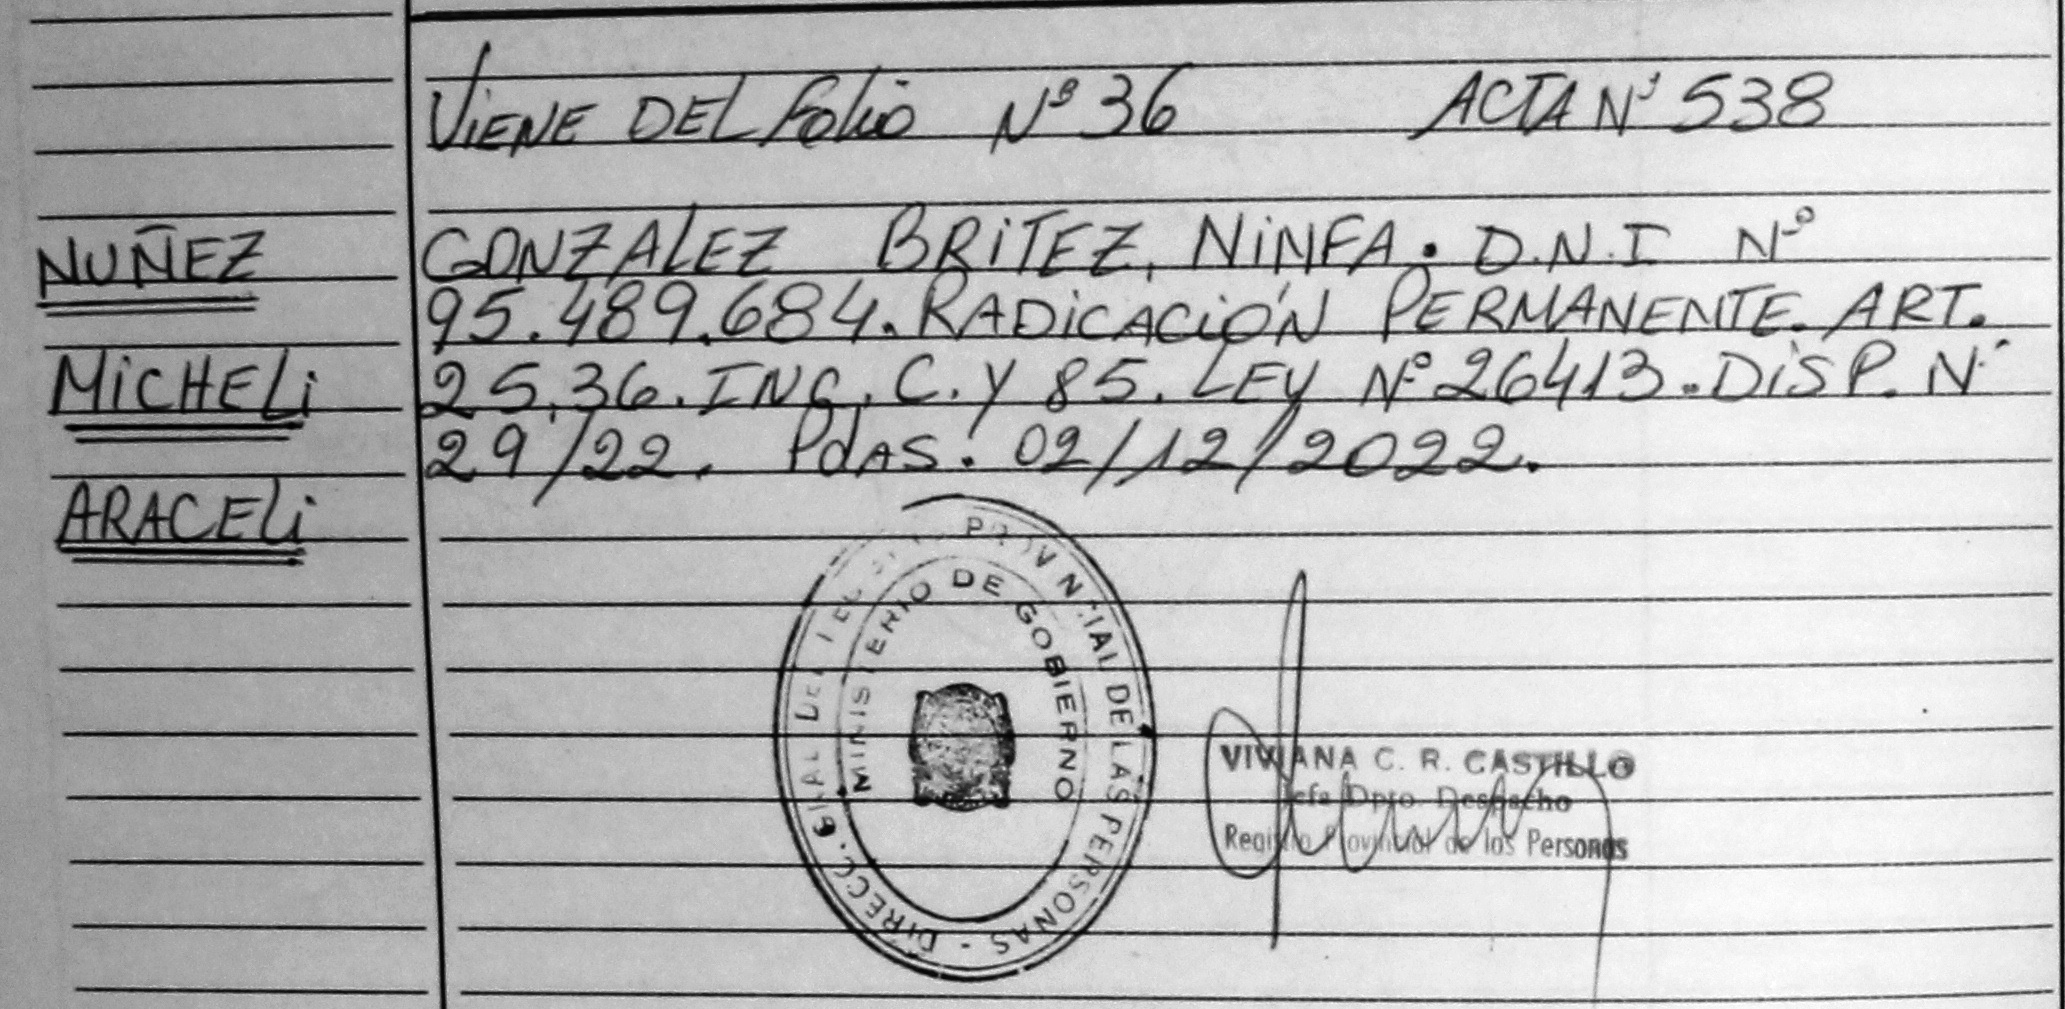 VIENE DEL Folio Nº 36 ACTA Nº 538
NUÑEZ
MICHELI
ARACELI
GONZALEZ BRITEZ, NINFA. D.N.I Nº
95.489.684. RADICACIÓN PERMANENTE. ART.
25,36. INC. C. Y 85. LEY Nº 26413. DISP. Nº
29/22. PdAS. 02/12/2022.
DIRECC. GRAL DEL REGISTRO PROVINCIAL DE LAS PERSONAS -
MINISTERIO DE GOBIERNO
VIVIANA C. R. CASTILLO
Jefa Dpto. Despacho
Registro Provincial de las Personas